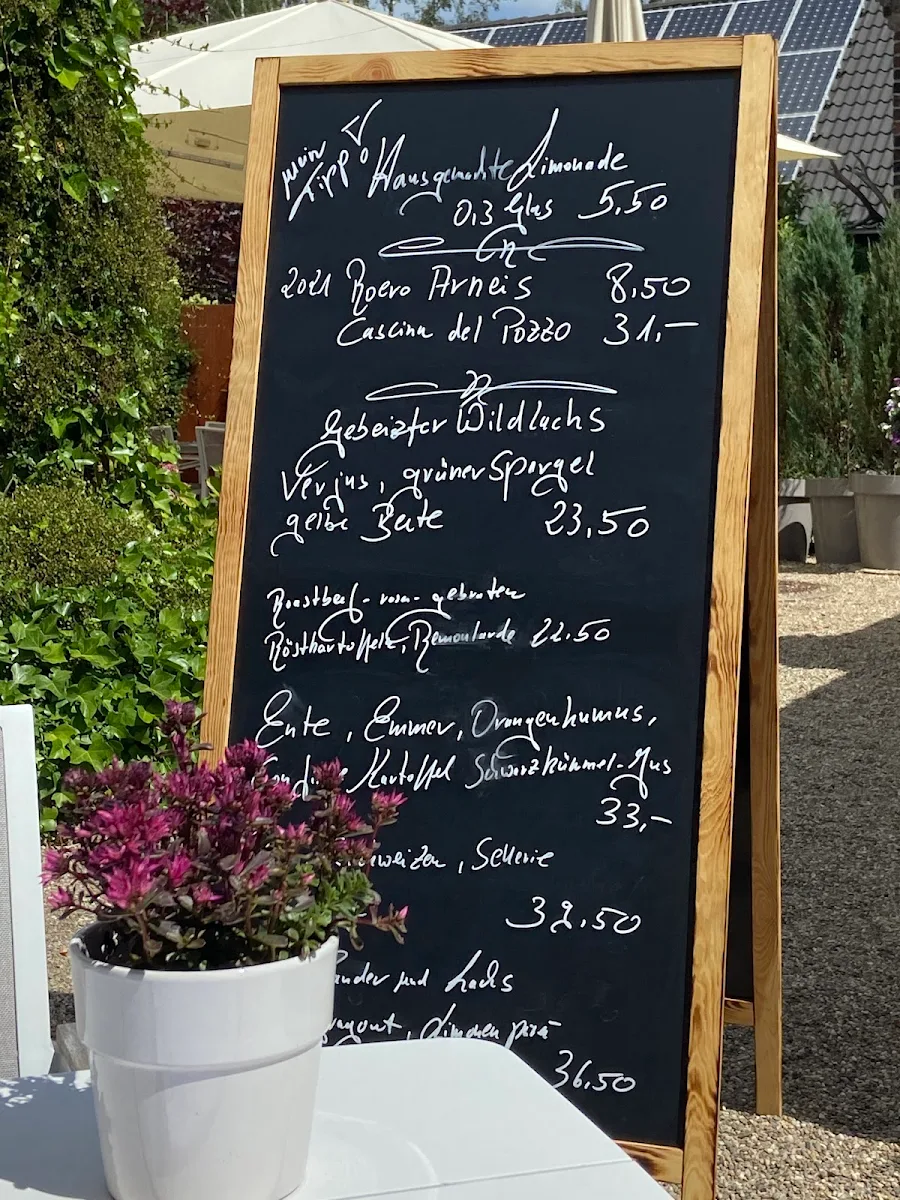 mein Tipp Hausgemachte Limonade
0,3 Glas 5,50
2021 Roero Arneis 8,50
Cascina del Pozzo 31,-
Gebeizter Wildlachs
Verjus, grüner Spargel
gelbe Beete 23,50
Roastbeef - rosa - gebraten
Röstkartoffeln, Remoulade 22.50
Ente, Emmer, Orangenhumus,
Kartoffel Schwarzkümmel-Jus
33,-
weizen, Sellerie
32,50
ander und Lachs
ragout, Limonen püré
36,50